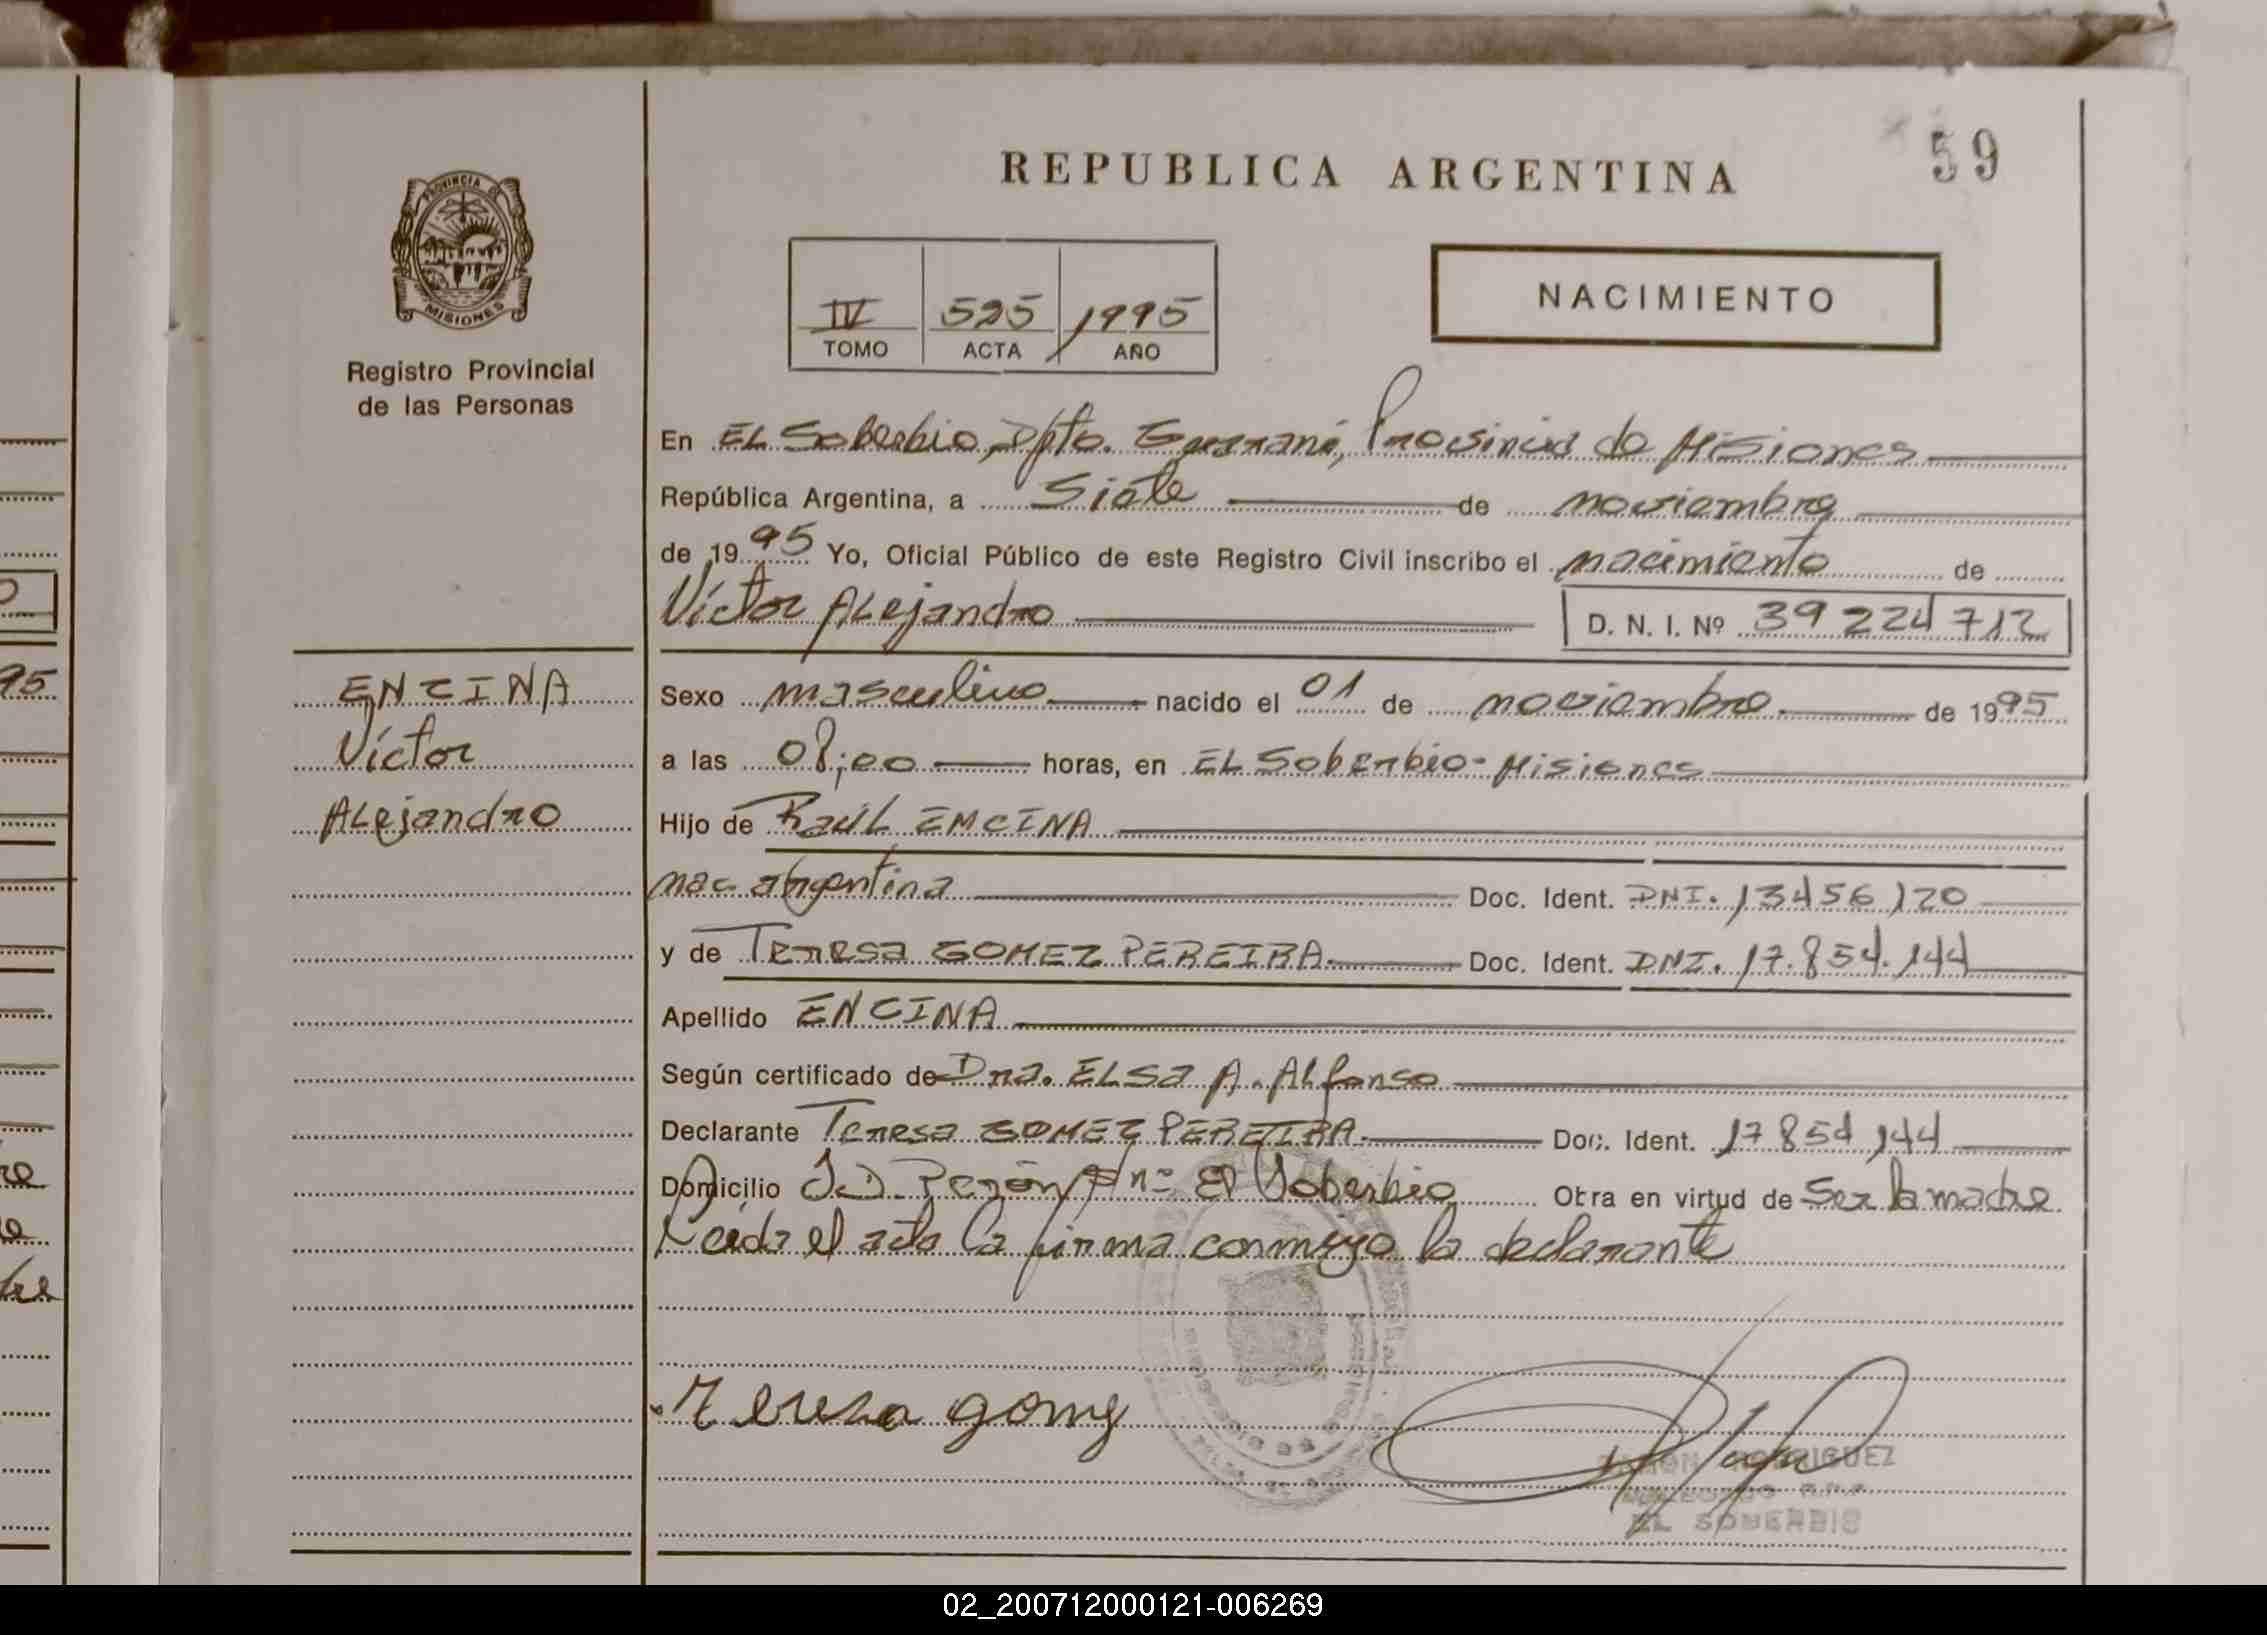 REPUBLICA ARGENTINA
59
PROVINCIA DE
MISIONES
Registro Provincial
de las Personas
IV 525 1995
TOMO ACTA AÑO
NACIMIENTO
En EL Soberbio, Dpto. Guaraní, Provincia de Misiones
República Argentina, a Siete de noviembre
de 1995 Yo, Oficial Público de este Registro Civil inscribo el nacimiento de
Víctor Alejandro
D. N. I. Nº 39 224 712
ENCINA
Víctor
Alejandro
Sexo masculino nacido el 01 de noviembre de 1995
a las 08;00 horas, en EL Soberbio - Misiones
Hijo de Raúl EMCINA
nac argentina Doc. Ident. DNI. 13456120
y de Teresa GOMEZ PEREIRA Doc. Ident. DNI. 17.854.144
Apellido ENCINA
Según certificado de Dra. ELSA A. Alfonso
Declarante Teresa GOMEZ PEREIRA Doc. Ident. 17 854 144
Domicilio J.D. Perón s/nº El Soberbio Obra en virtud de Ser la madre
Leida el acta la firma conmigo la declarante
Teresa gomez
RAMON RODRIGUEZ
EL SOBERBIO
95
02_200712000121-006269